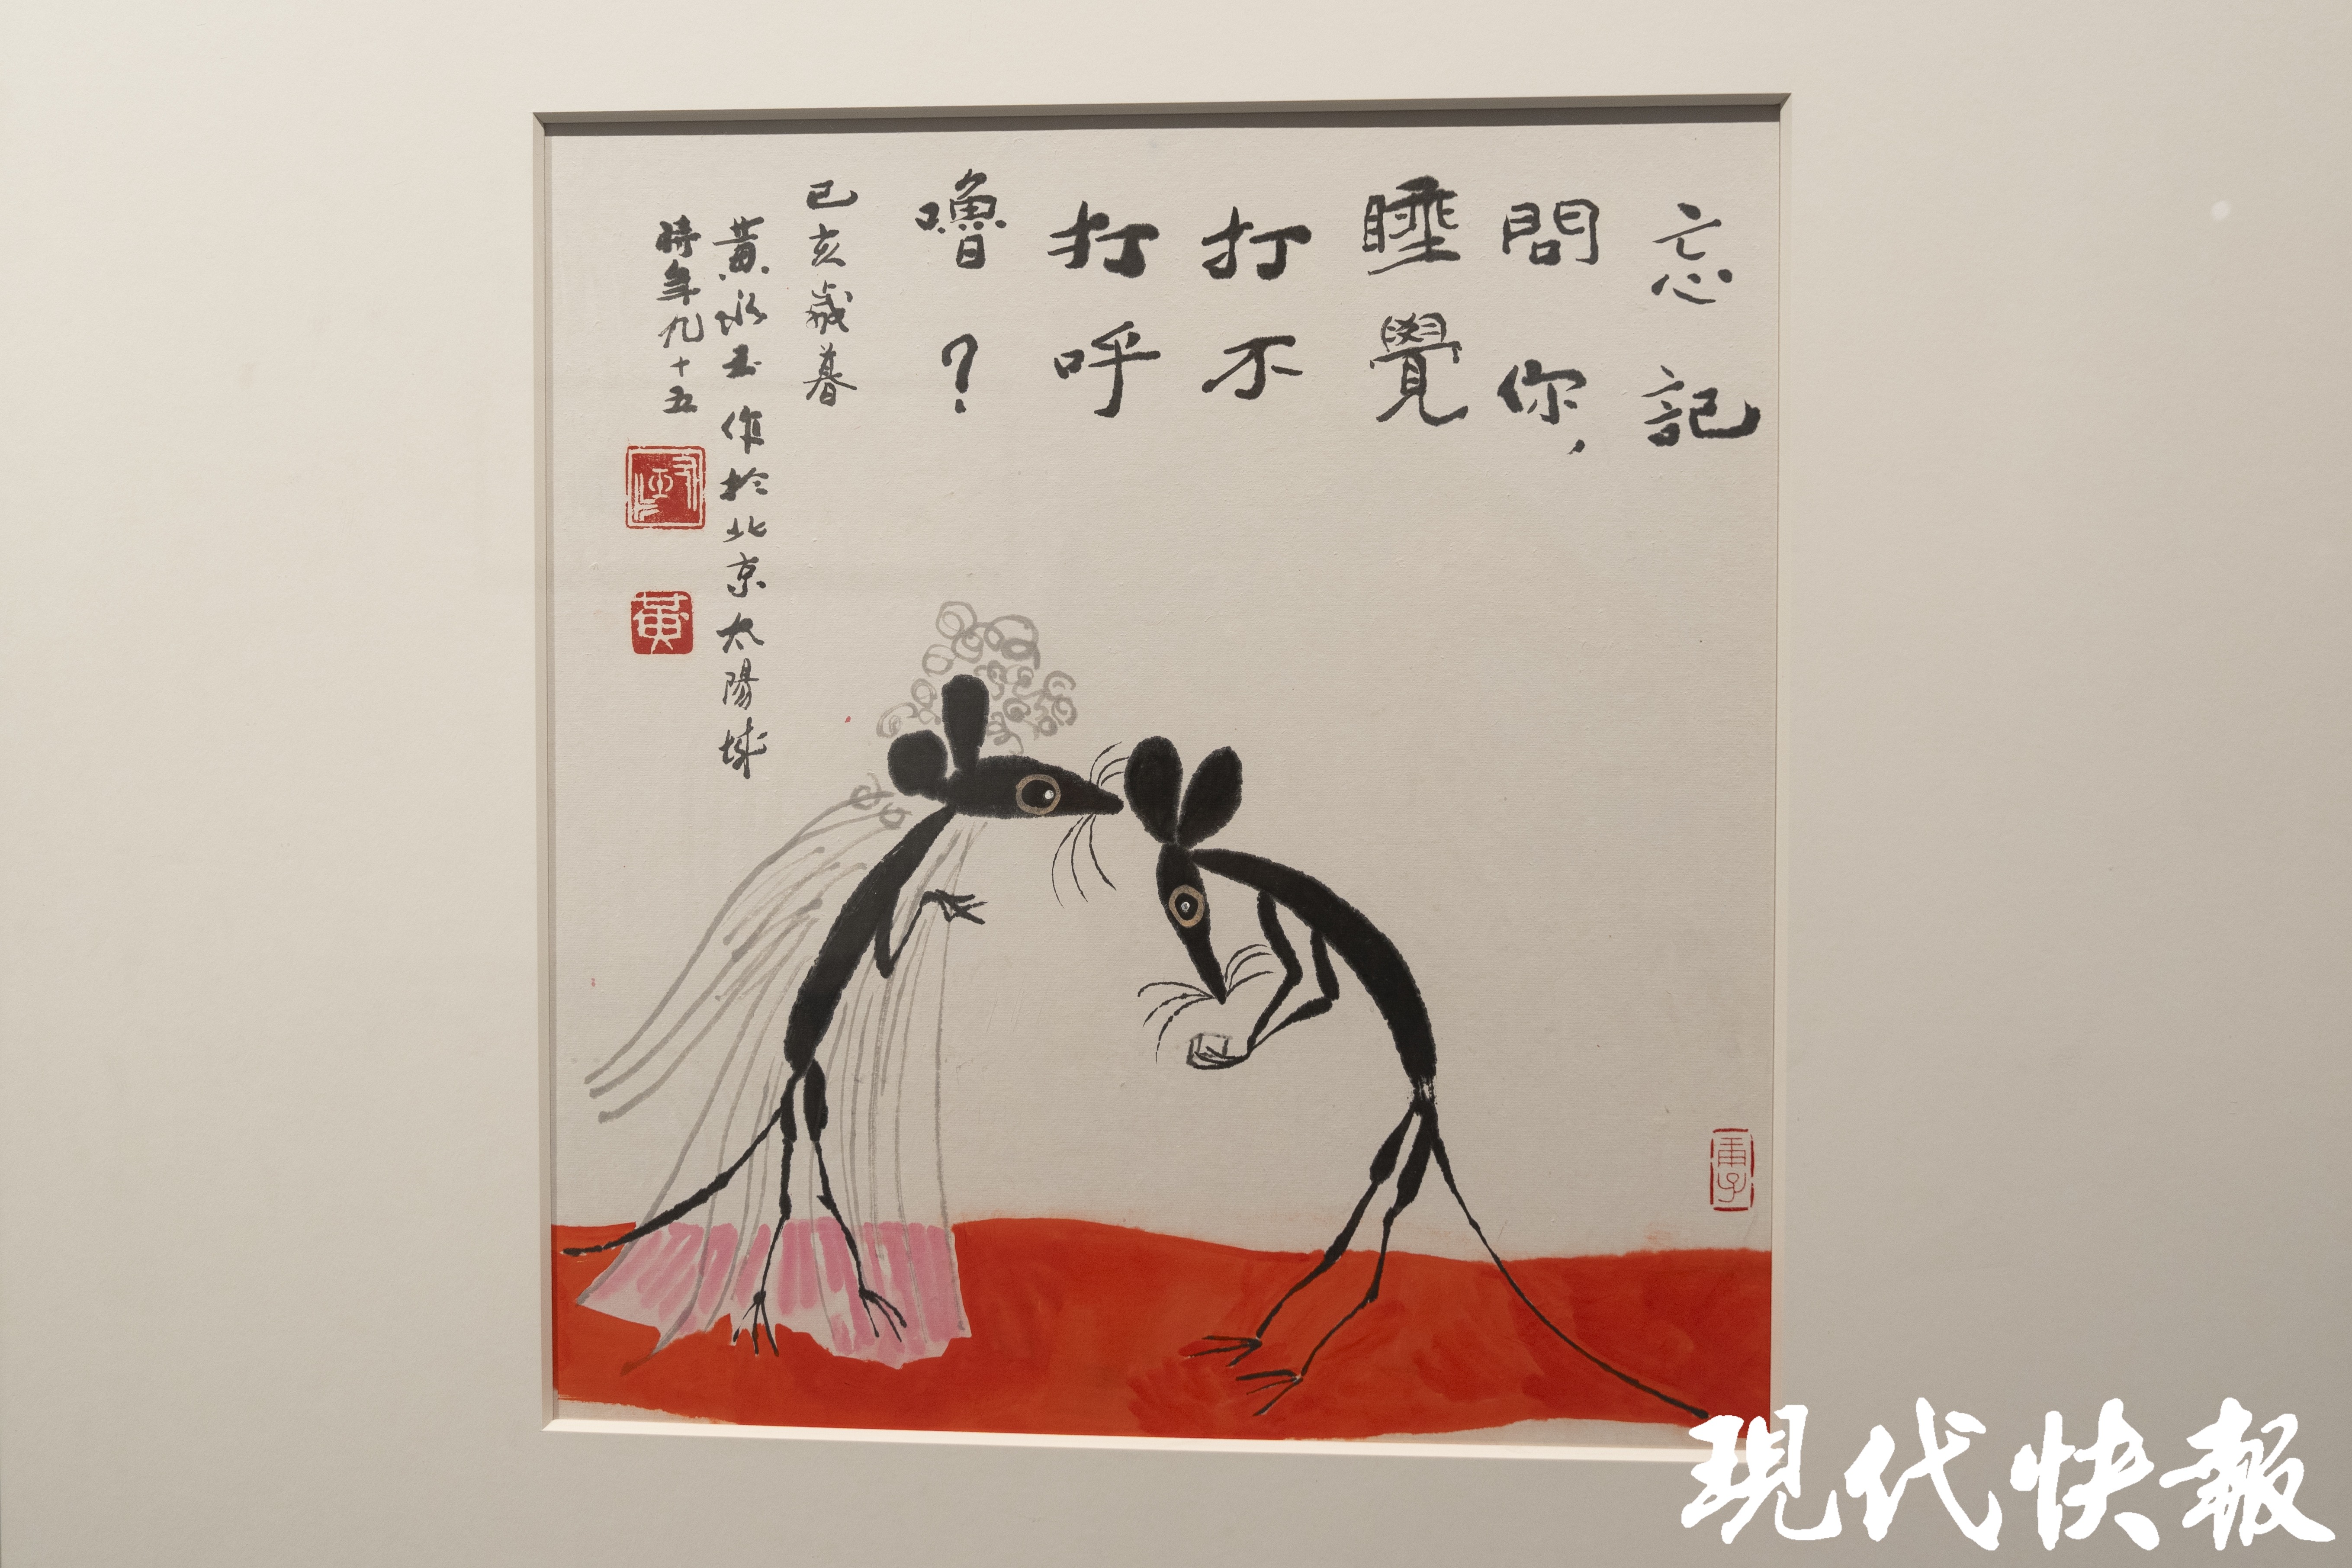 忘記
問你，
睡覺
打不
打呼
嚕？
己亥歲暮
黃永玉作於北京太陽城
時年九十五
黃
現代快報